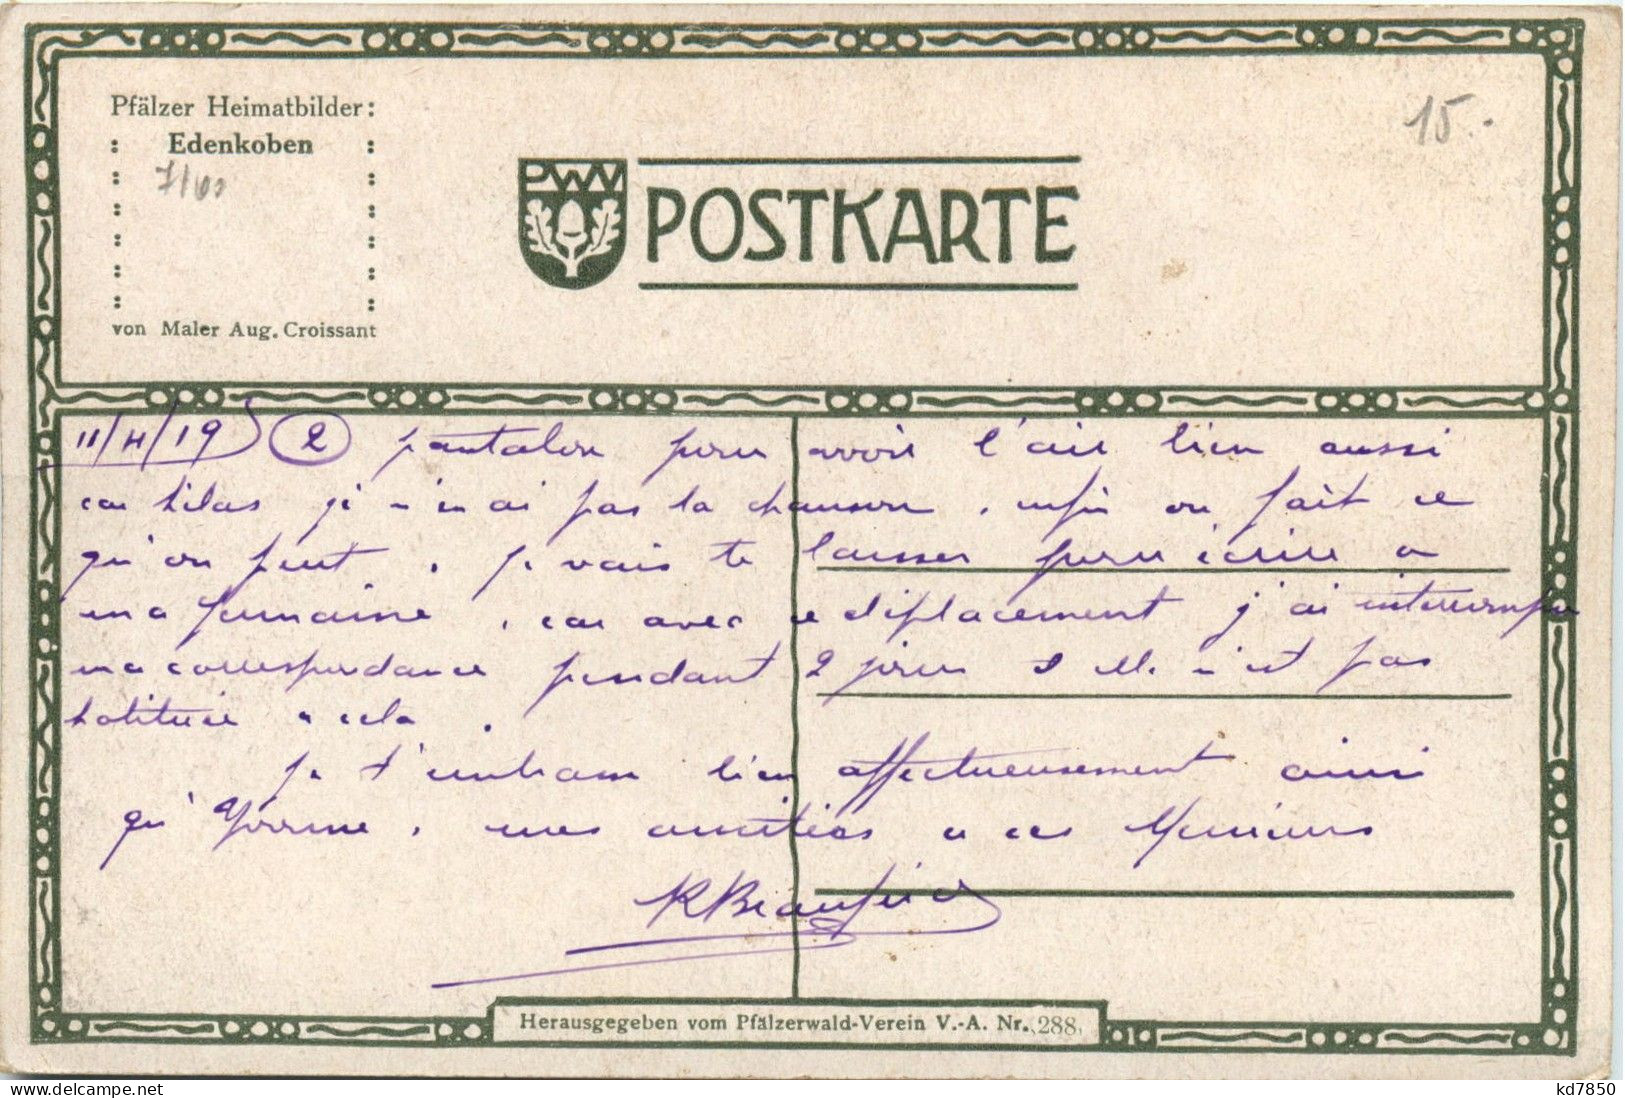 Pfälzer Heimatbilder:
Edenkoben
von Maler Aug. Croissant
15.-
PWV
POSTKARTE
11/4/19 2 pantalon pour avoir l'air bien aussi
car hélas je n'en ai pas la chanson, enfin on fait ce
qu'on peut. Je vais te laisser pour écrire a
ma, car avec ce déplacement j'ai interrompu
ma correspondance pendant 2 jours & elle n'est pas
habituée a cela.
Je t'embrasse bien affectueusement ainsi
qu'Yvonne, mes amitiés a ces Messieurs
Herausgegeben vom Pfälzerwald-Verein V.-A. Nr. 288.
www.delcampe.net
kd7850